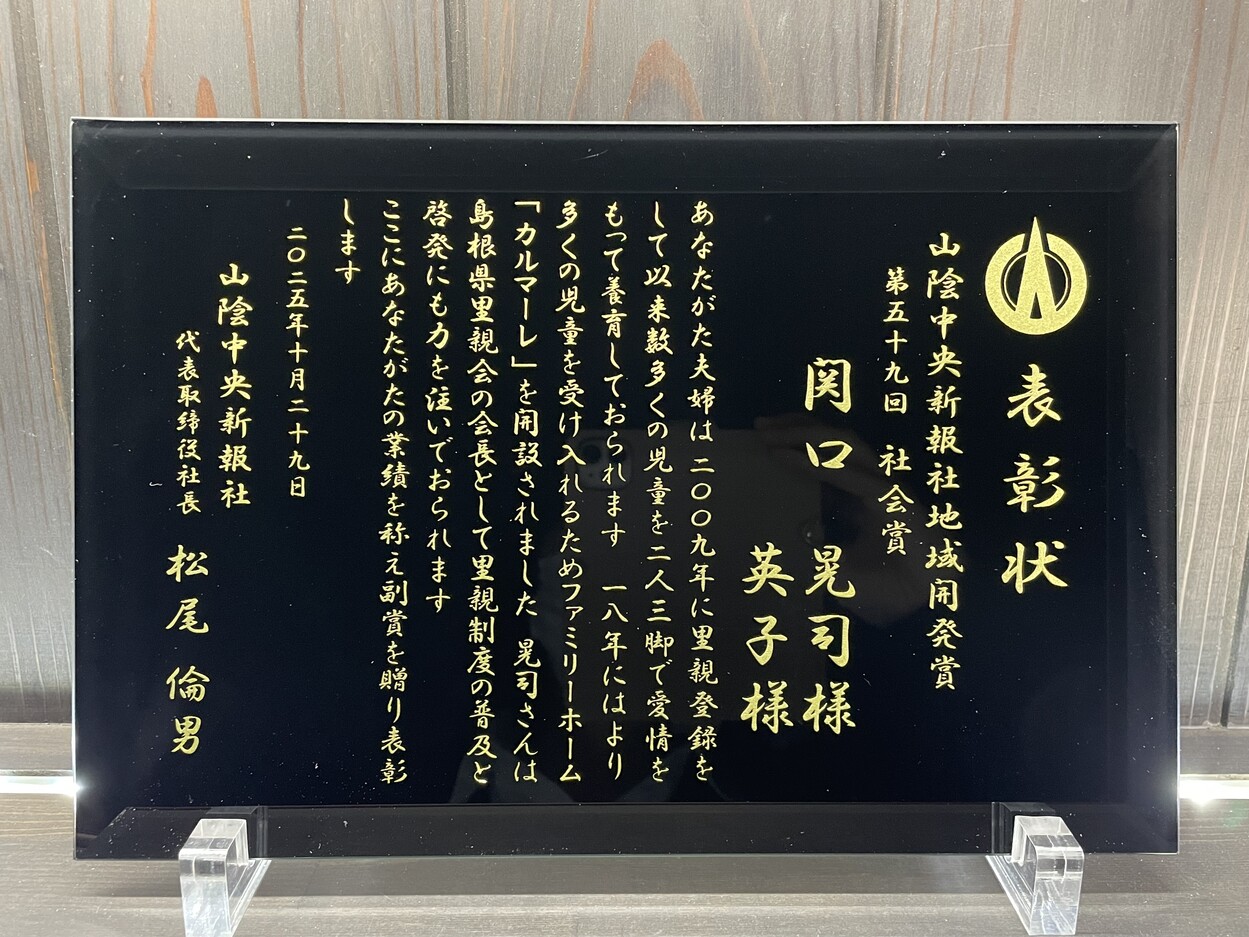 表彰状
山陰中央新報社地域開発賞
第五十九回 社会賞
関口 晃司様
英子様
あなたがた夫婦は二〇〇九年に里親登録を
して以来数多くの児童を二人三脚で愛情を
もって養育しておられます 一八年にはより
多くの児童を受け入れるためファミリーホーム
「カルマーレ」を開設されました 晃司さんは
島根県里親会の会長として里親制度の普及と
啓発にも力を注いでおられます
ここにあなたがたの業績を称え副賞を贈り表彰
します
二〇二五年十月二十九日
山陰中央新報社
代表取締役社長 松尾倫男